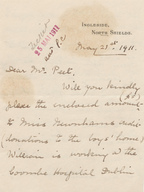 INGLESIDE,
NORTH SHIELDS.
25 MAY 1911
May 23rd 1911.
Dear Mr. Peet,
Will you kindly
place the enclosed amount
to Miss
donations to the boys' home)
is working at the
Coombe Hospital Dublin